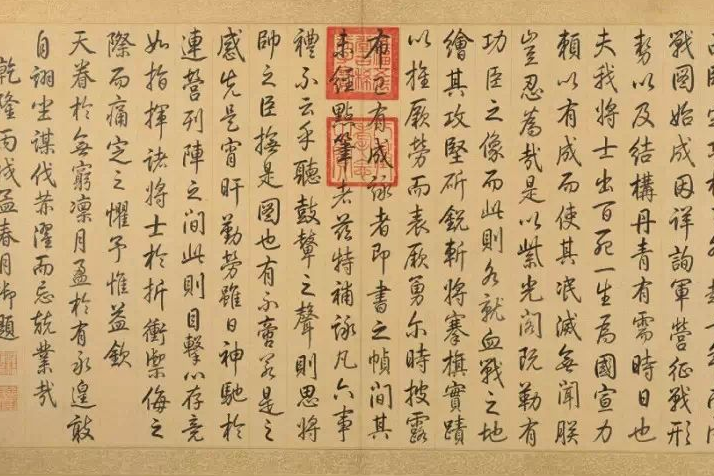 戰圖始成因詳詢軍營征戰形
勢以及結構丹青有需時日也
夫我將士出百死一生為國宣力
賴以有成而使其泯滅無聞朕
豈忍為哉是以紫光閣既勒有
功臣之像而此則各就血戰之地
繪其攻堅斫銳斬將搴旗實蹟
以旌厥勞而表厥勇尔時披露
布已有成詠者即書之幀間其
未經點筆者茲特補詠凡六事
禮不云乎聽鼓鼙之聲則思將
帥之臣撫是圖也有不啻若是之
感先是宵旰勤勞雖日神馳於
連營列陣之間此則目擊心存竟
如指揮諸將士於折衝禦侮之
際而痛定之懼予惟益欽
天眷於無窮凜月盈於有永遑敢
自詡坐謀伐恭濯而忘兢業哉
乾隆丙戌孟春月御題